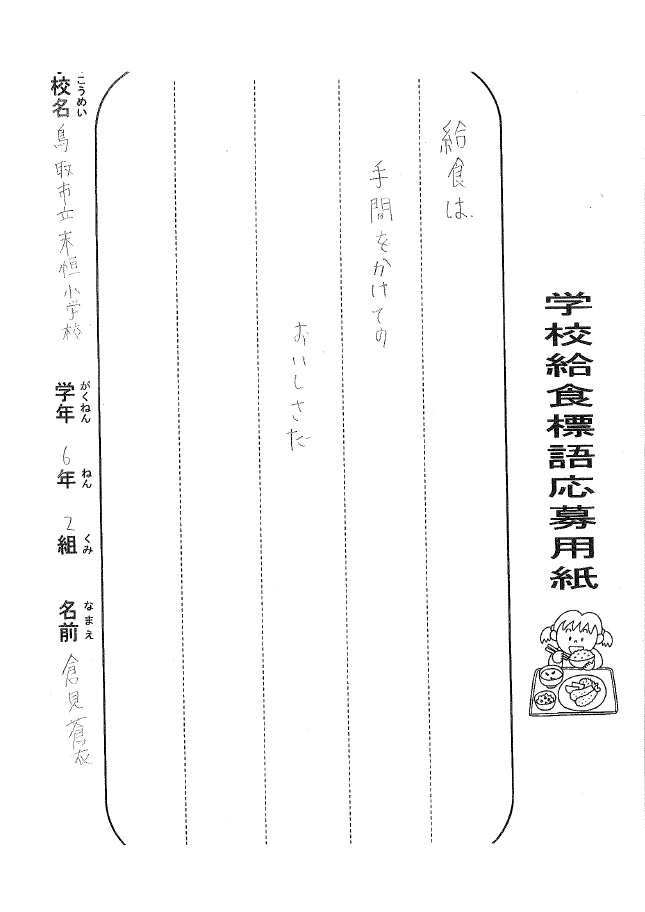 学校給食標語応募用紙
給食は
手間をかけての
おいしさだ
こうめい
校名 鳥取市立末恒小学校
がくねん
学年
ねん
6年
くみ
2組
なまえ
名前 倉見蒼衣